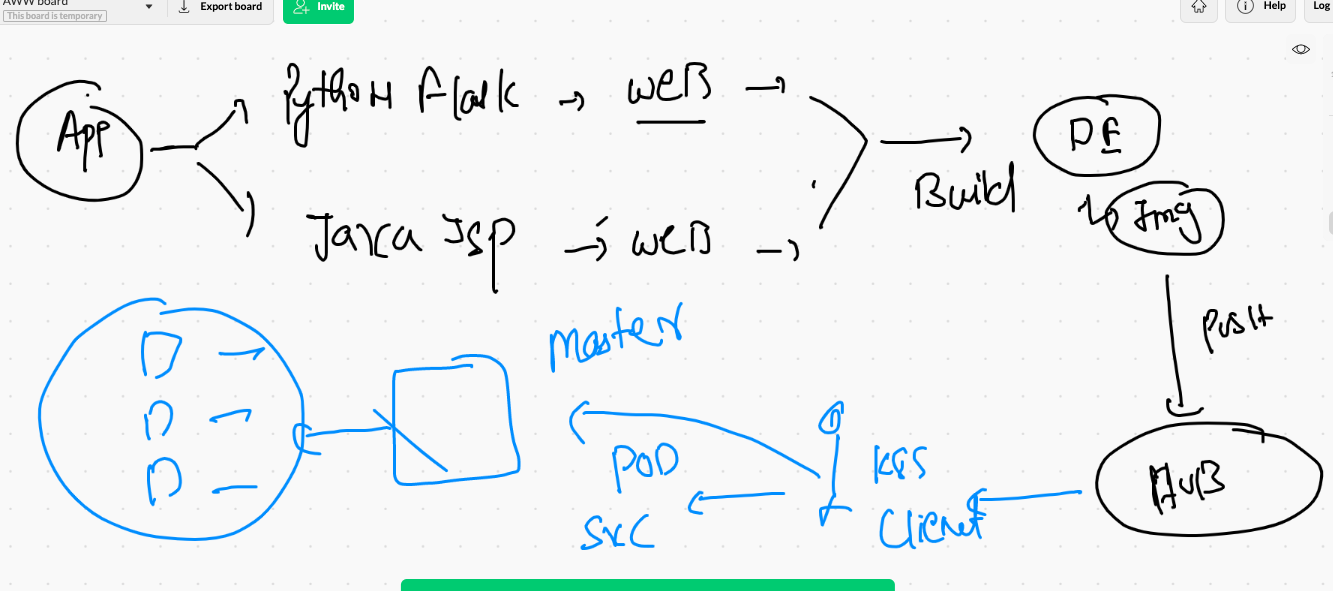 AWW board
This board is temporary
Export board
Invite
Help
Log
App
Python flask → web →
Java Jsp → web →
Build
DF
to Img
Push
HUB
K8S
Client
master
POD
SVC
D →
D →
D –